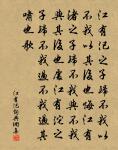 江有汜之子歸不我以
不我以其後也悔江有
渚之子歸不我與不我
與其後也處江有沱之
子歸不我過不我過其
嘯也歌
江有汜